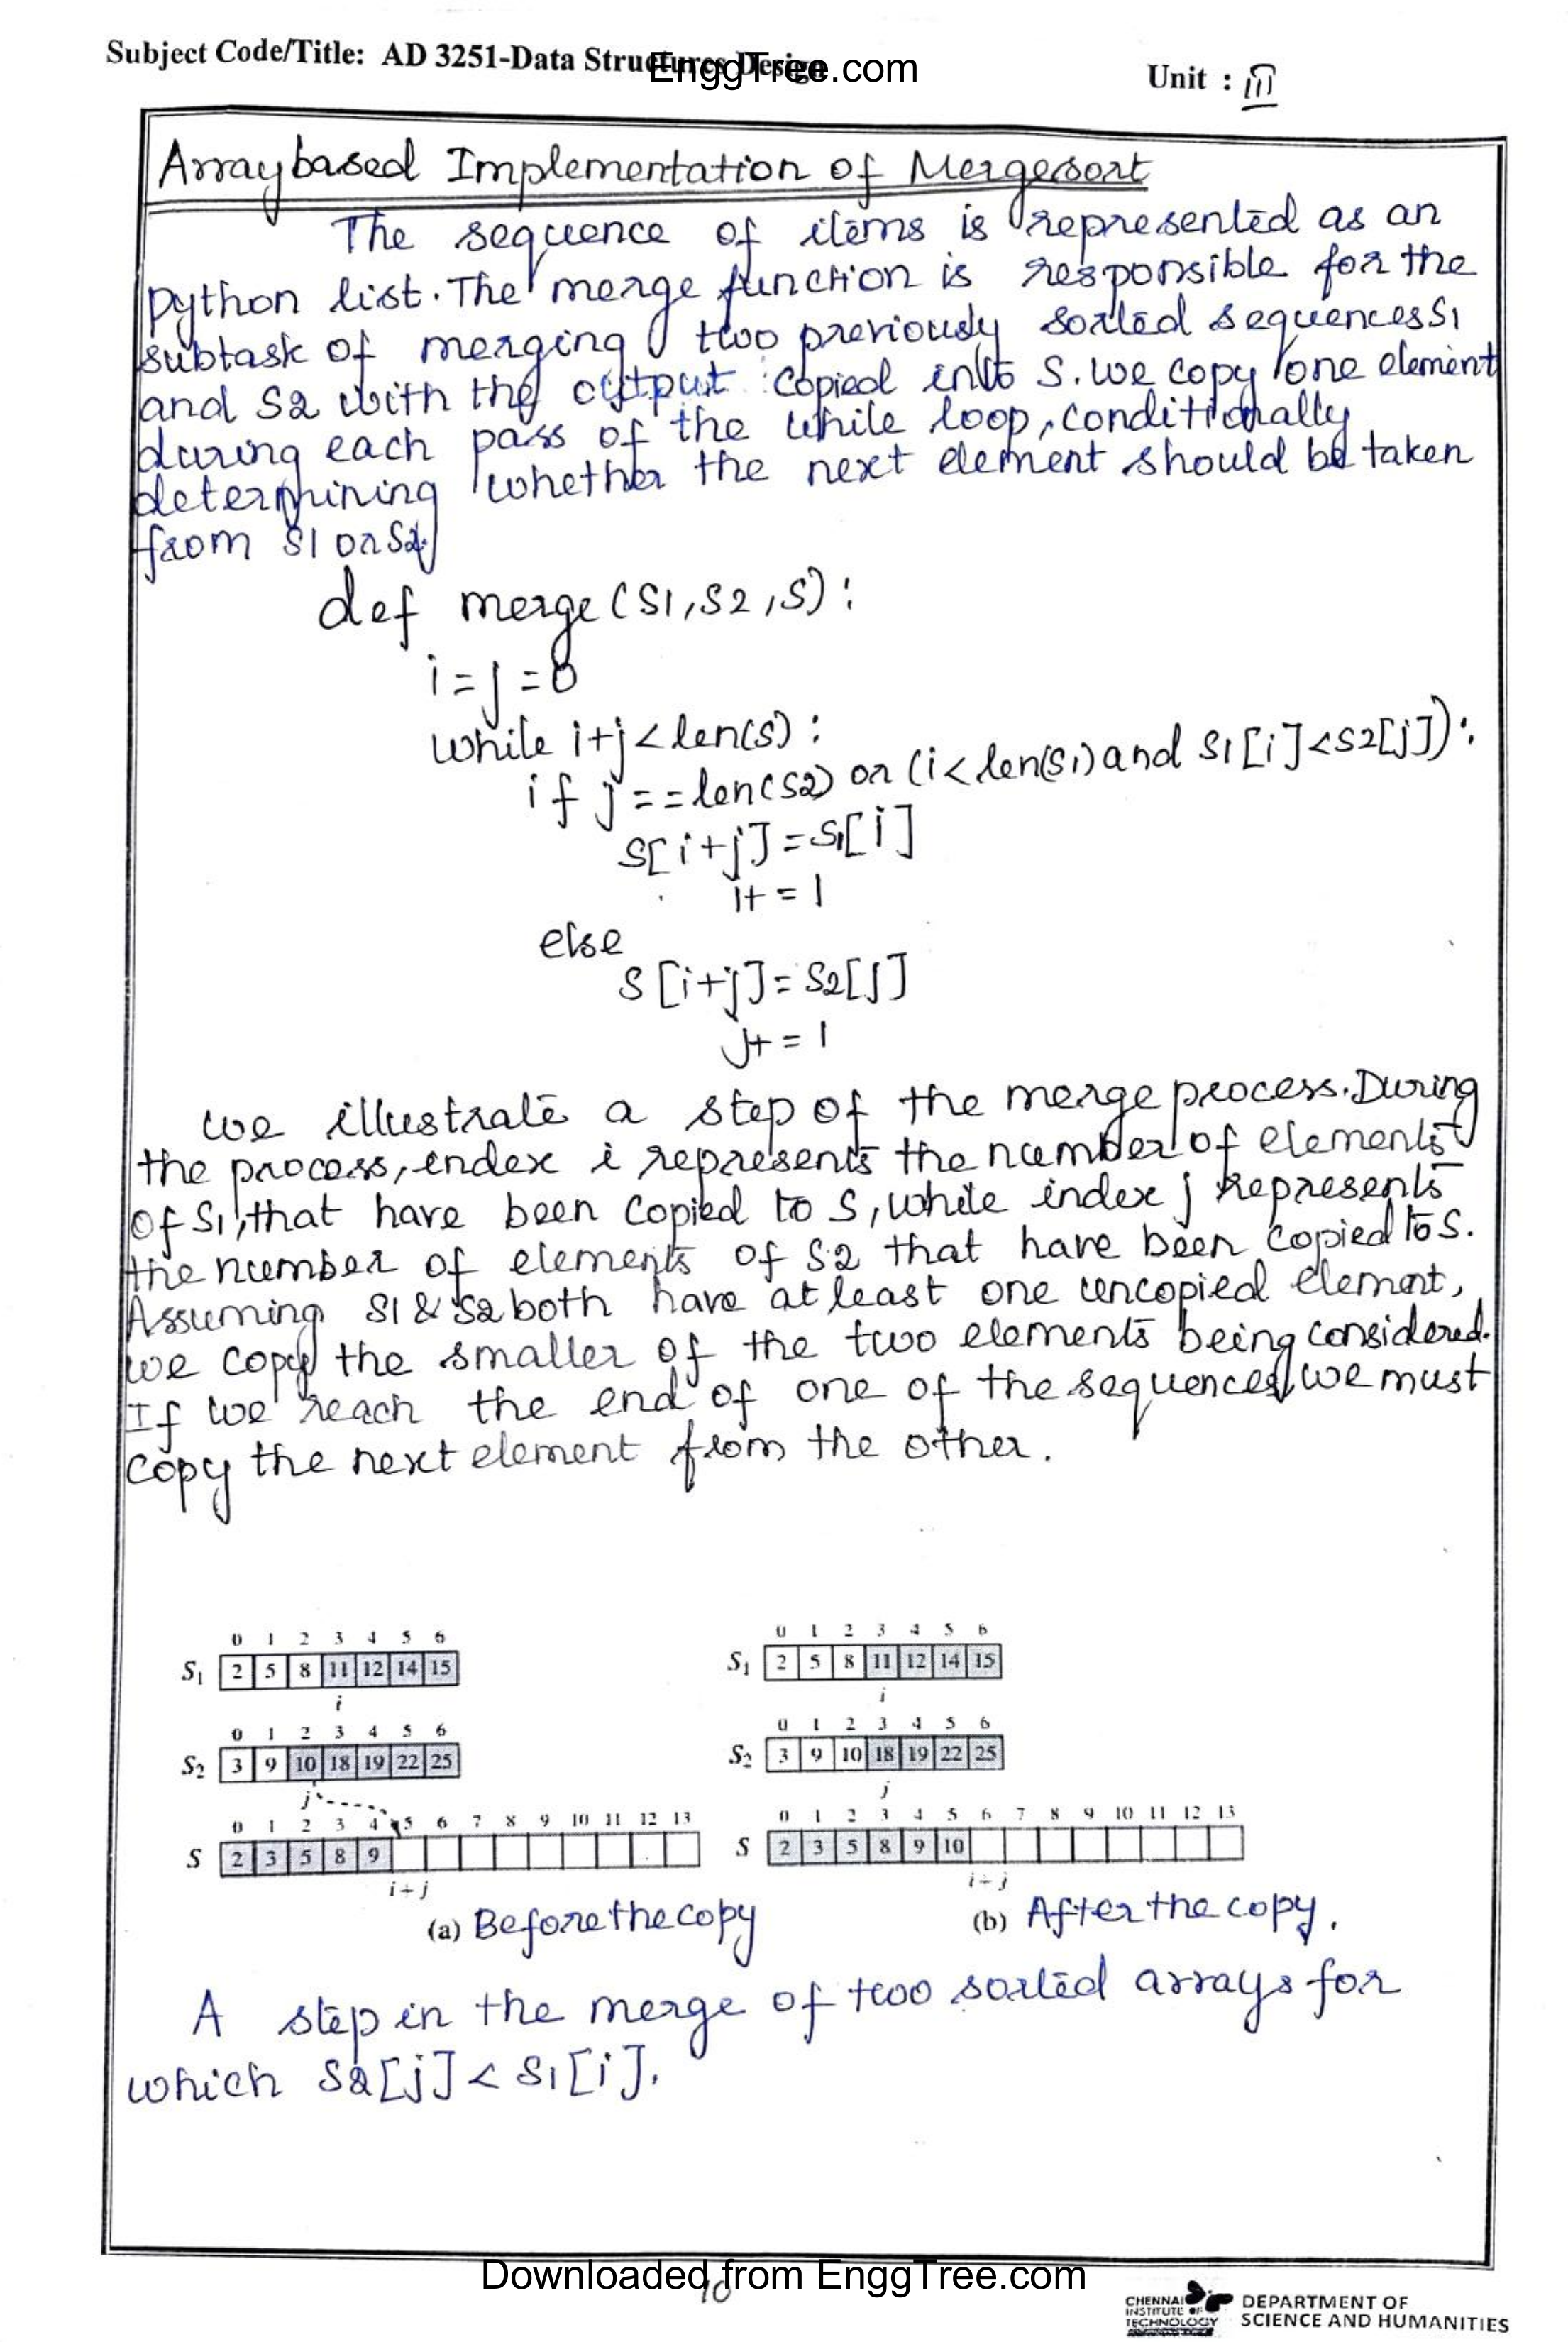 Subject Code/Title: AD 3251-Data Structures Design
EnggTree.com
Unit : III
Array based Implementation of Mergesort
The sequence of items is represented as an
python list. The merge function is responsible for the
subtask of merging two previously sorted sequences S1
and S2 with the output copied into S. we copy one element
during each pass of the while loop, conditionally
determining whether the next element should be taken
from S1 or S2.
def merge(S1,S2,S):
i=j=0
while i+j<len(S):
if j==len(S2) or (i<len(S1) and S1[i]<S2[j]):
S[i+j]=S1[i]
i+=1
else
S[i+j]=S2[j]
j+=1
we illustrate a step of the merge process. During
the process, index i represents the number of elements
of S1, that have been copied to S, while index j represents
the number of elements of S2 that have been copied to S.
Assuming S1 & S2 both have at least one uncopied element,
we copy the smaller of the two elements being considered.
If we reach the end of one of the sequences, we must
copy the next element from the other.
0 1 2 3 4 5 6
S1 2 5 8 11 12 14 15
i
0 1 2 3 4 5 6
S2 3 9 10 18 19 22 25
j
0 1 2 3 4 5 6 7 8 9 10 11 12 13
S 2 3 5 8 9
i+j
(a) Before the copy
0 1 2 3 4 5 6
S1 2 5 8 11 12 14 15
i
0 1 2 3 4 5 6
S2 3 9 10 18 19 22 25
j
0 1 2 3 4 5 6 7 8 9 10 11 12 13
S 2 3 5 8 9 10
i+j
(b) After the copy.
A step in the merge of two sorted arrays for
which S2[j] < S1[i].
Downloaded from EnggTree.com
10
CHENNAI
INSTITUTE OF
TECHNOLOGY
DEPARTMENT OF
SCIENCE AND HUMANITIES